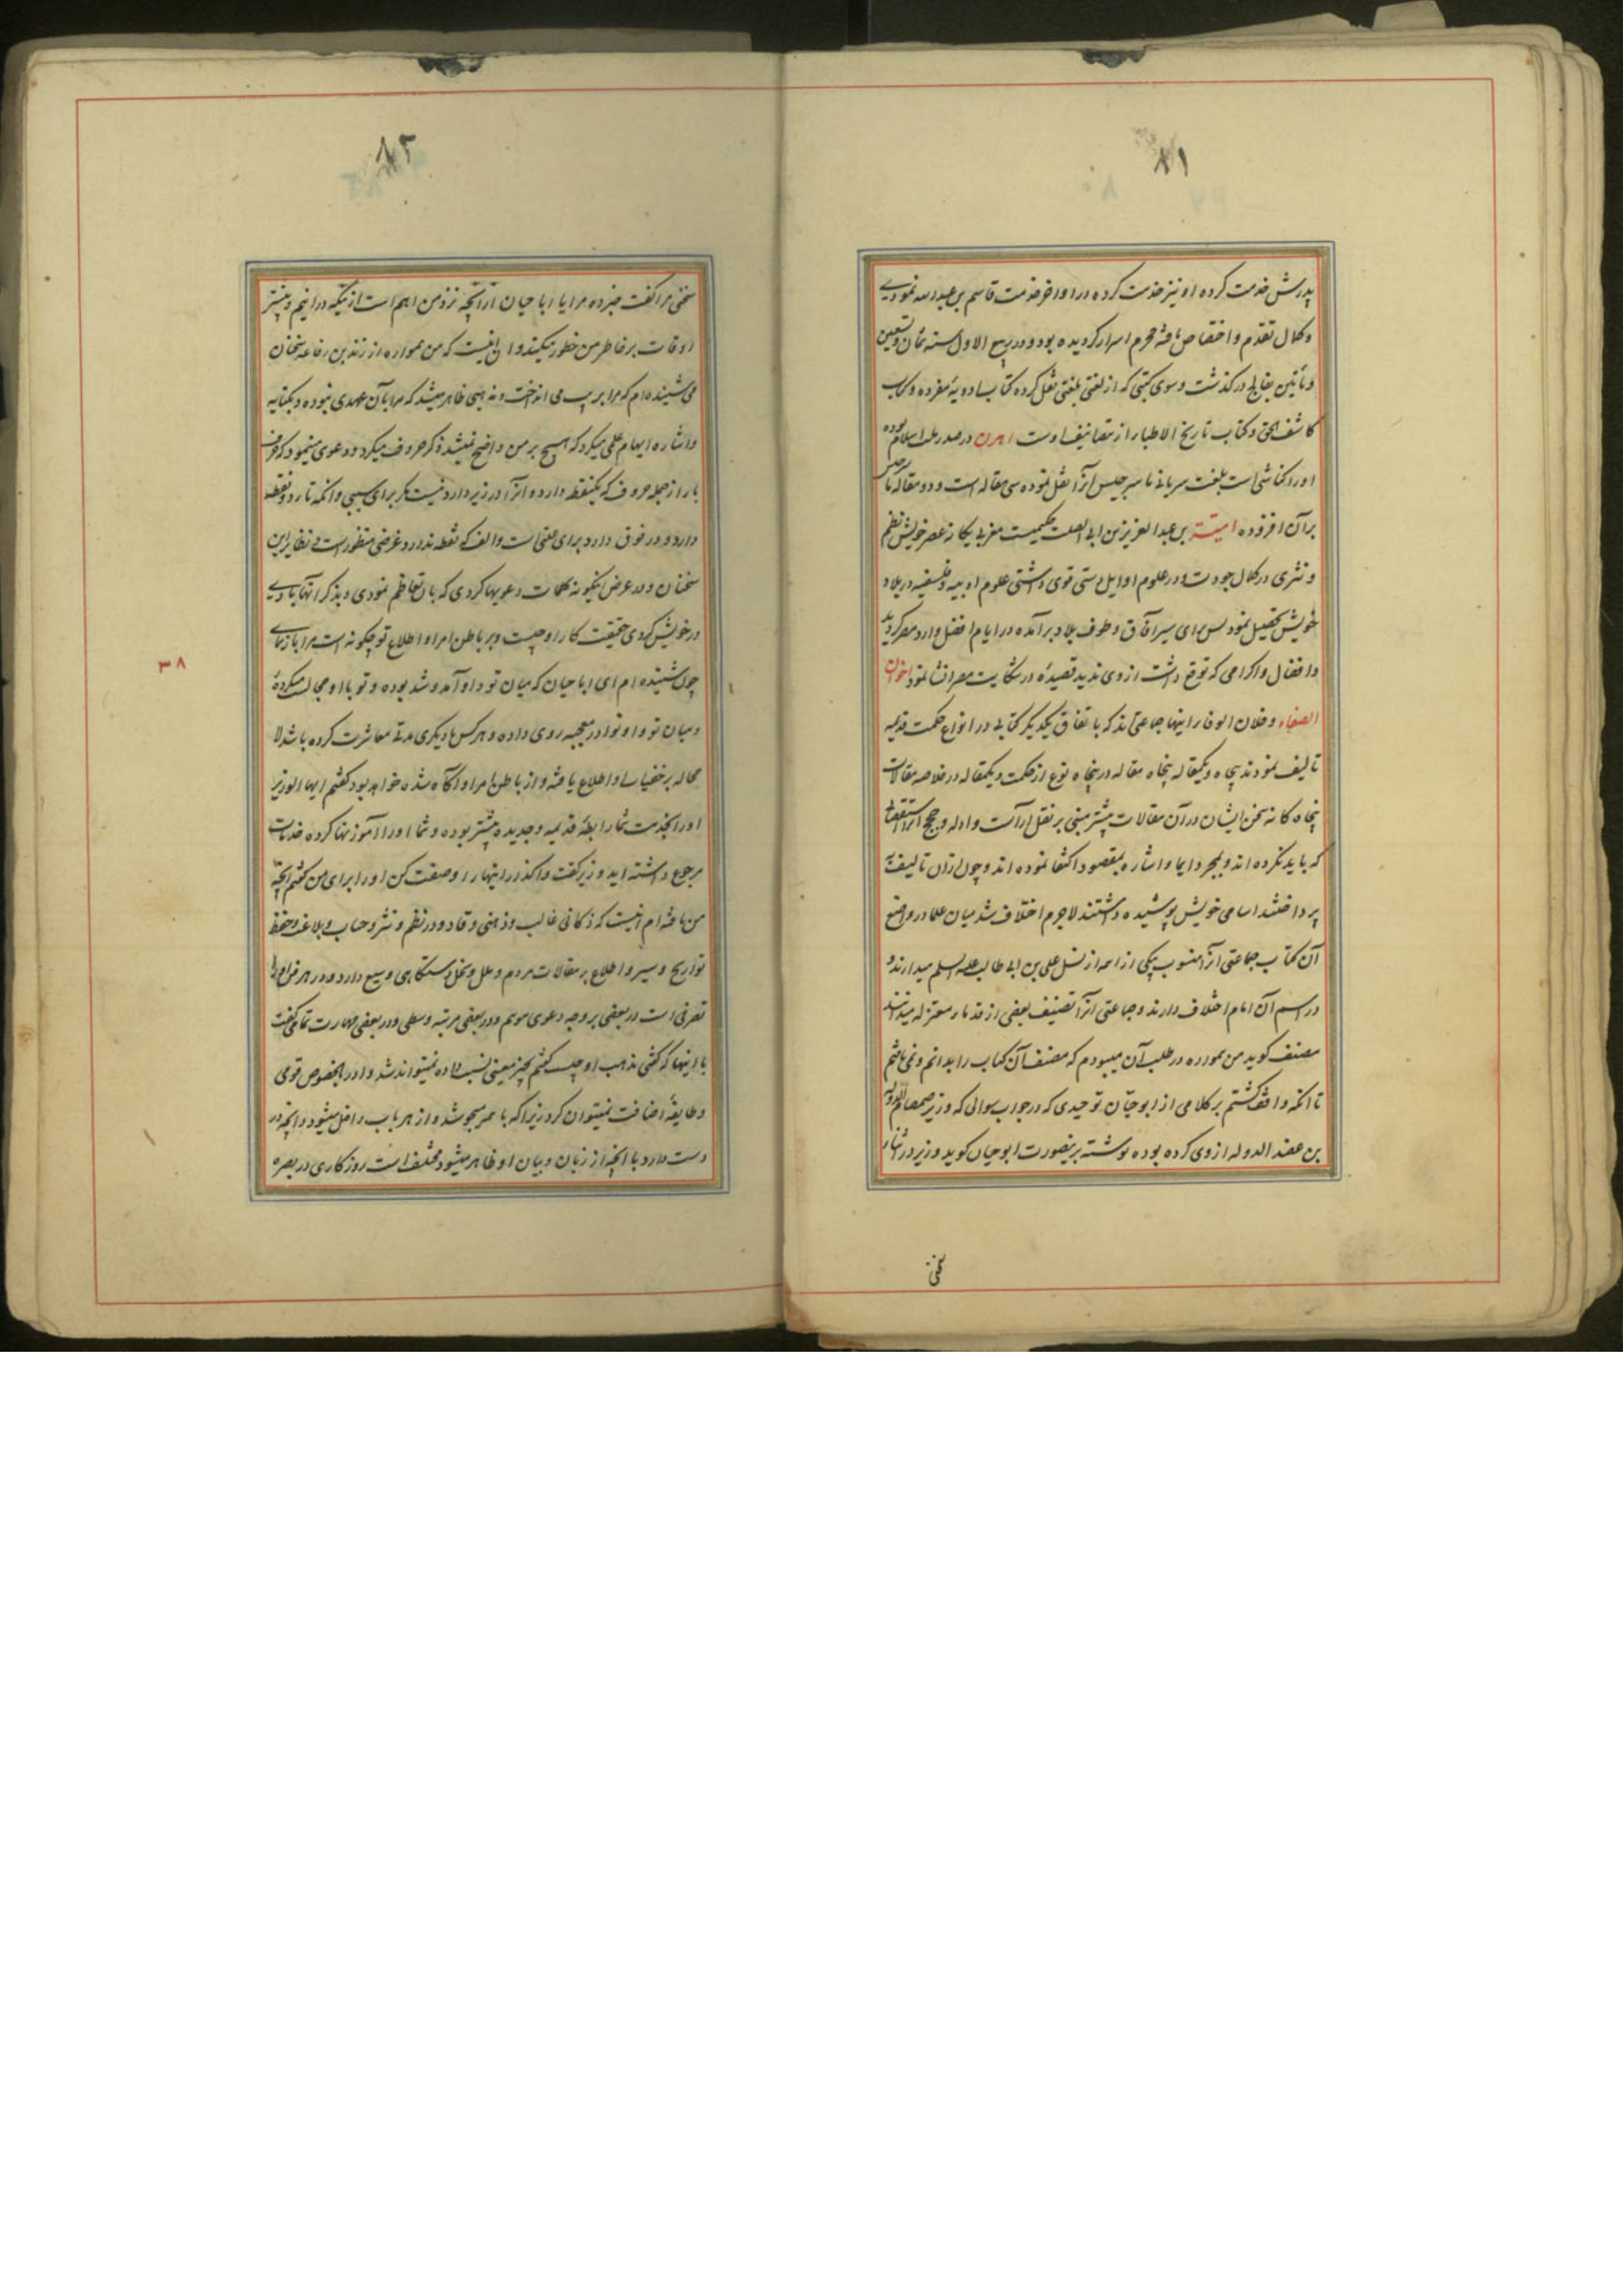 ۸۱
پدرش خدمت کرده او نیز خدمت کرده در اواخر خدمت قاسم بن عبدالله نمودی
و کمال تقدم و اختصاص یافته محرم اسرار گردیده بود و در ربیع الاول سنه ثمان و تسعین
و مأتین بفالج درگذشت و سوی کتبی که از لغتی بلغتی نقل کرده کتاب ادویهٔ مفرده و کتاب
کاشف الحق و کتاب تاریخ الاطبا از تصانیف اوست اهرن در صدر ملت اسلام بوده
او را کناشی است بلغت سریانی ماسرجیس آنرا نقل نموده سی مقاله است و دو مقاله ماسرجیس
بر آن افزوده امیة بن عبدالعزیز بن ابی الصلت حکیمیست مغربی یکانه عصر خویش نظم
و نثری در کمال جودت و در علوم اوایل دستی قوی داشتی علوم ادبیه و فلسفیه در بلاد
خویش تحصیل نمود پس برای سیر آفاق و طوف بلاد برآمده در ایام افضل وارد مصر گردید
و افضال و اکرامی که توقع داشت از وی ندید قصیدهٔ در شکایت مصر انشا نمود اخوان
الصفاء و خلان الوفا را اینها جماعتی اند که باتفاق یکدیگر کتابی در انواع حکمت قدیمه
تالیف نمودند پنجاه و یکمقاله پنجاه مقاله در پنجاه نوع از حکمت و یکمقاله در خلاصه مقالات
پنجاه کانه سخن ایشان در آن مقالات بیشتر مبنی بر نقل آراست و ادله و حجج آنرا استقصا
که باید نکرده اند و بمجرد ایما و اشاره بمقصود اکتفا نموده اند و چون از آن تالیف
پرداختند اسامی خویش پوشیده داشتند لاجرم اختلاف شد میان علما در واضع
آن کتاب جماعتی آنرا منسوب بیکی از ائمه از نسل علی بن ابی طالب علیه السلم میدارند و
در اسم آن امام اختلاف دارند و جماعتی آنرا تصنیف بعضی از قدماء معتزله میدانند
مصنف کوید من همواره در طلب آن میبودم که مصنف آن کتاب را بدانم و نمی یافتم
تا انکه واقف گشتم بر کلامی از ابو حیّان توحیدی که در جواب سوالی که وزیر صمصام الدوله
بن عضد الدوله از وی کرده بوده نوشته برینصورت ابو حیان کوید وزیر در اثناء
سخنی
۸۲
سخنی مرا گفت خبر ده مرا یا ابا حیان از آنچه نزد من اهم است از اینکه در آنیم و بیشتر
اوقات بر خاطر من خطور میکند و آن اینست که من همواره از زید بن رفاعه سخنان
می شنیده ام که مرا بریب می انداخت و مذهبی ظاهر میشد که مرا بآن عهدی نبوده و بکنایه
و اشاره ایهام علمی میکرد که هیچ بر من واضح نمیشد ذکر حروف میکرد و دعوی مینمود که حرف
با را از جمله حروف که یکنقطه دارد و آنرا در زیر دارد نیست مگر برای سببی و انکه تا دو نقطه
دارد و در فوق دارد برای علتی است و الف که نقطه ندارد غرضی منظور است فی نظایر این
سخنان و در عرض اینکونه کلمات دعویها کردی که بآن تعاظم نمودی و بذکر آنها
در خویش کردی حقیقت کار او چیست و بر باطن امر او اطلاع تو چکونه است مرا باز نمای
چون شنیده ام ای ابا حیان که میان تو و او آمد و شد بوده و تو با او مجالست میکردهٔ
و میان تو و او نوادر عجیبه روی داده و هر کس با دیکری مدتی معاشرت کرده باشد لا
محاله بر خفیات او اطلاع یافته و از باطن امر او آگاه شده خواهد بود گفتم ایها الوزیر
او را بخدمت شما رابطهٔ قدیمه و جدیده بیشتر بوده و شما او را آموزنها کرده خدمات
مرجوع داشته اید وزیر گفت واگذار اینها را و صفت کن او را برای من گفتم انچه
من یافته ام اینست که ذکائی غالب و ذهنی وقاد و در نظم و نثر و حساب و بلاغت و حفظ
تواریخ و سیر و اطلاع بر مقالات مردم و ملل و نحل دستکاهی وسیع دارد و در هر فن او را
تصرفی است در بعضی بر وجه دعوی موهم و در بعضی مرتبه وسطی و در بعضی مهارت تمام گفت
با اینها که گفتی مذهب او چیست گفتم بچیز معینی نسبت داده نمیتواند شد و او را بخصوص قومی
و طایفهٔ اضافت نمیتوان کرد زیرا که با همه میجوشد و از هر باب داخل میشود و انچه در
دست دارد با انچه از زبان و بیان او ظاهر میشود مختلف است روزکاری در بصره
۳۸